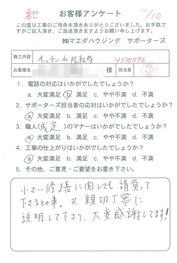 お客様アンケート
この度は工事のご用命を頂きありがとうございました。お手数で
すがご記入頂き、ご返送頂きますようお願い申し上げます。
㈱マエダハウジング サポーターズ
様
担当者
1. 電話の対応はいかがでしたでしょうか?
a. 大変満足 b. 満足 c. やや不満 d. 不満
2. サポーターズ担当者の対応はいかがでしたでしょうか?
a. 大変満足 b. 満足 c. やや不満 d. 不満
3. 職人( )のマナーはいかがでしたでしょうか?
a. 大変満足 b. 満足 c. やや不満 d. 不満
4. 工事の仕上がりはいかがでしたでしょうか?
a. 大変満足 b. 満足 c. やや不満 d. 不満
5. その他、ご意見・ご要望をお書きください!
小さい修繕に関しても請負って
下さる事。又親切丁寧に
説明して下さり、大変感謝してます!